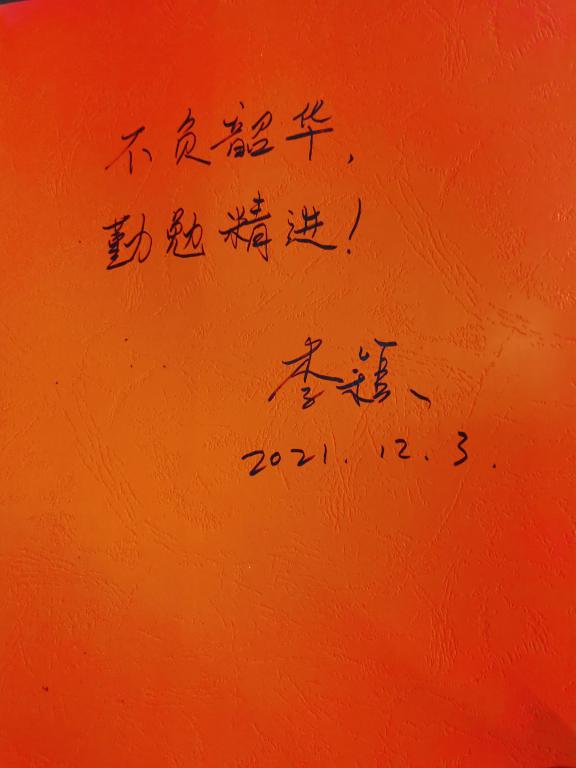 不负韶华，
勤勉精进！
李颖
2021.12.3.